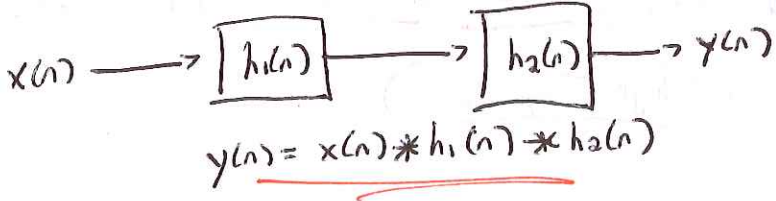 x(n) → h₁(n) → h₂(n) → y(n)
y(n) = x(n) * h₁(n) * h₂(n)